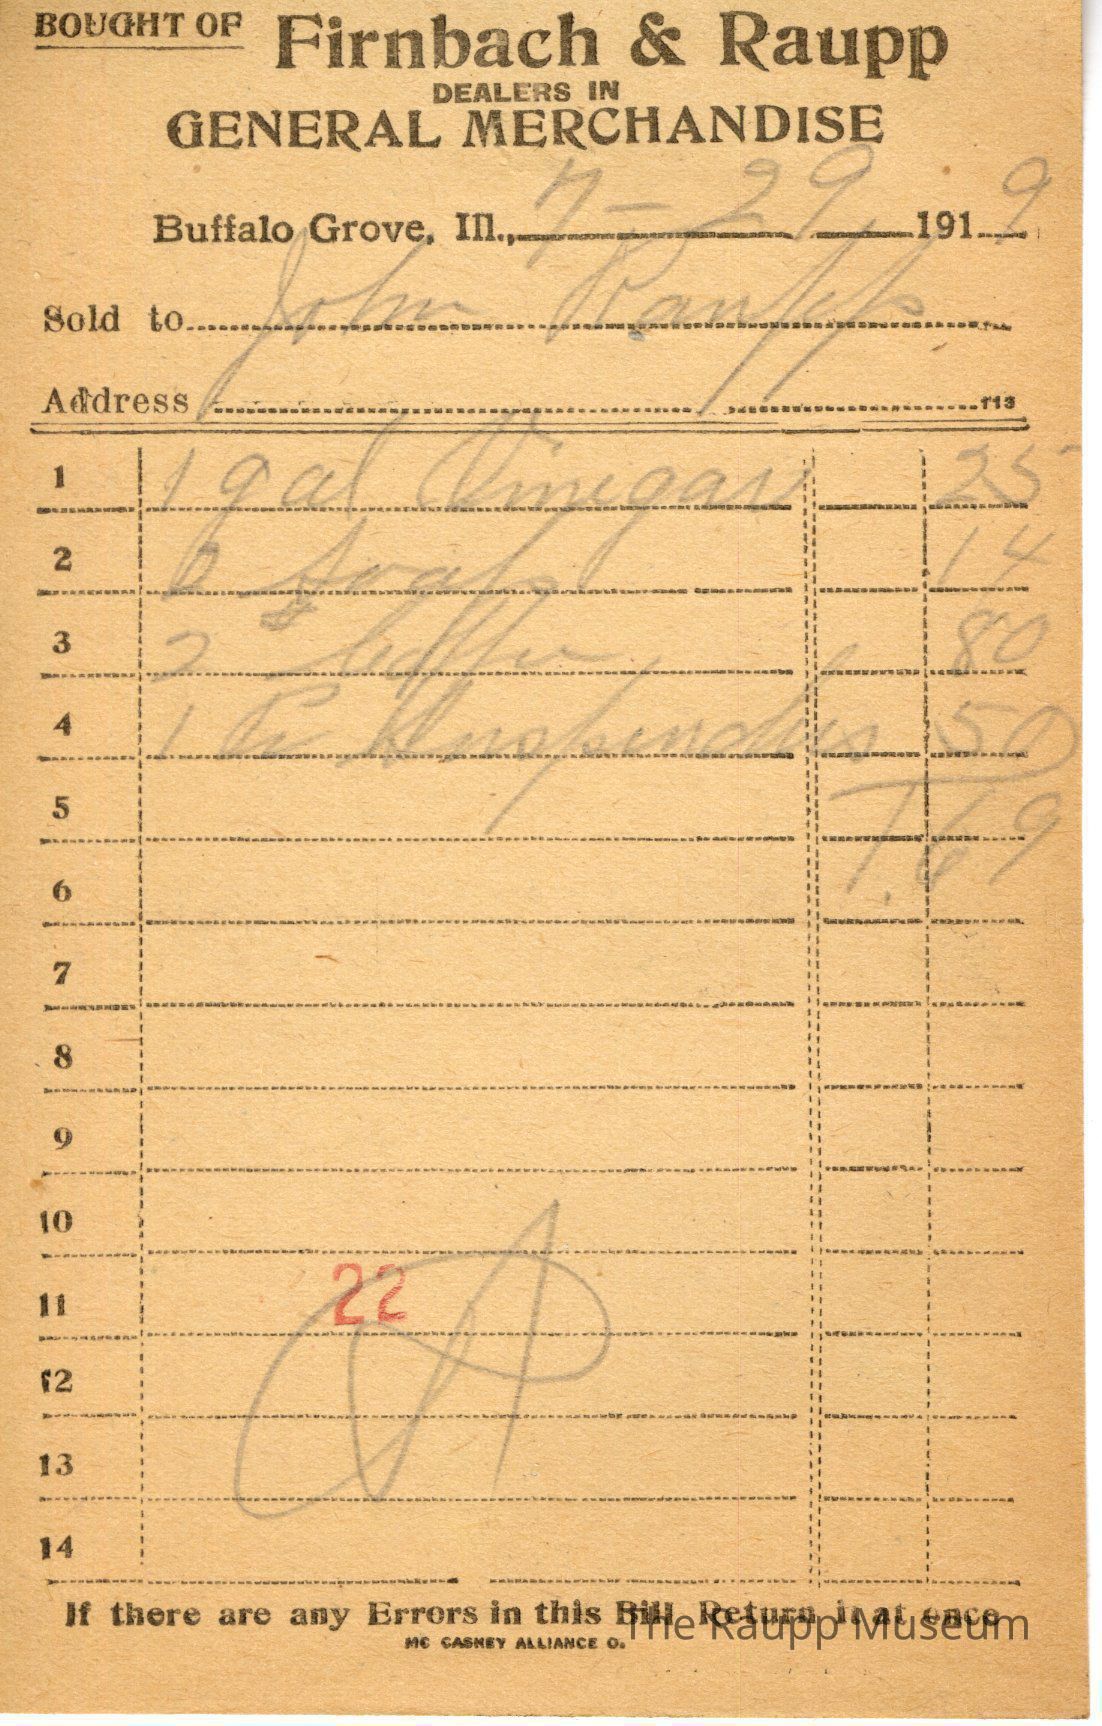 BOUGHT OF Firnbach & Raupp
DEALERS IN
GENERAL MERCHANDISE
Buffalo Grove, Ill., 7-29 1919
Sold to John Raupp
Address 113
1 1 gal Vinegar 25
2 Soap 14
3 2 Coffee 80
4 1 Pr Suspenders 50
5 1.69
6
7
8
9
10
11 22
12
13
14
If there are any Errors in this Bill Return it at once
MC CASKEY ALLIANCE O.
The Raupp Museum